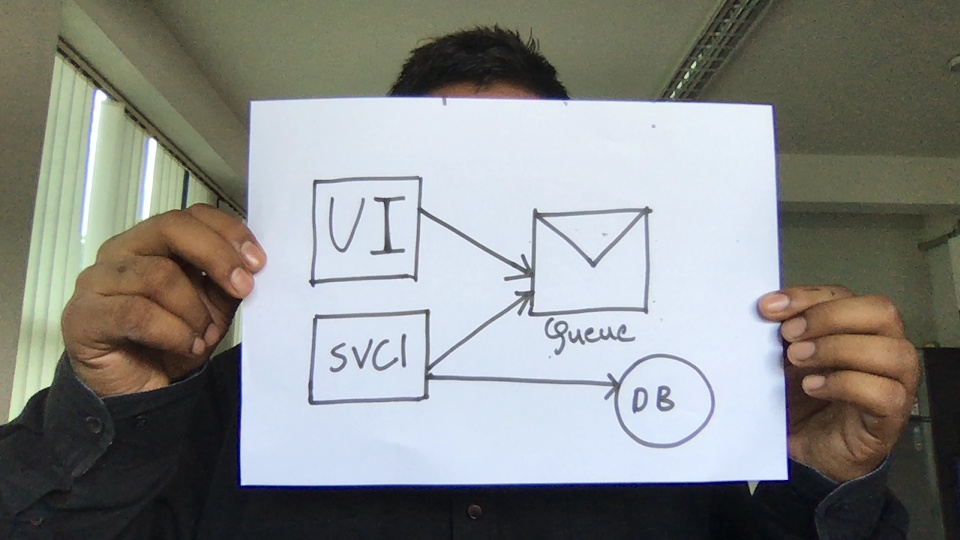 UI
SVC1
Queue
DB